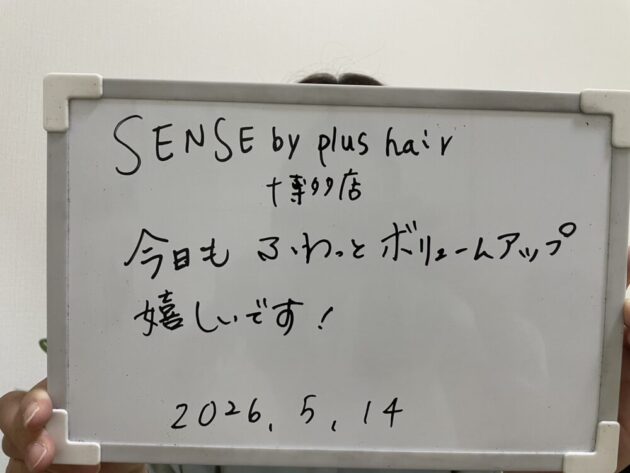 SENSE by plus hair
博多店
今日も ふわっと ボリュームアップ
嬉しいです！
2026.5.14